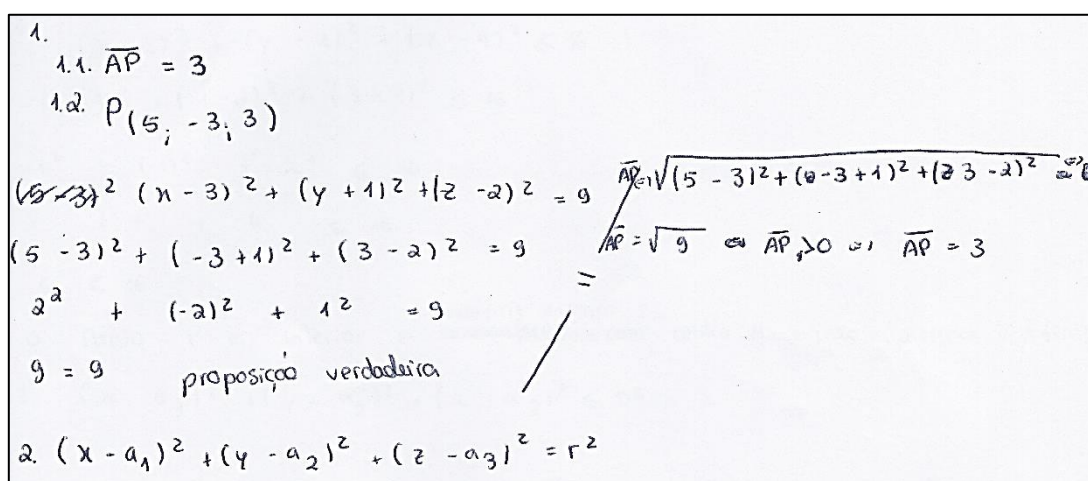 1.
1.1. AP = 3
1.2. P(5; -3; 3)
(x - 3)² + (y + 1)² + (z - 2)² = 9
(5 - 3)² + (-3 + 1)² + (3 - 2)² = 9
2² + (-2)² + 1² = 9
9 = 9 proposição verdadeira
AP = √(5 - 3)² + (-3 + 1)² + (3 - 2)² ⇔
AP = √9 ⇔ AP > 0 ⇔ AP = 3
2. (x - a₁)² + (y - a₂)² + (z - a₃)² = r²